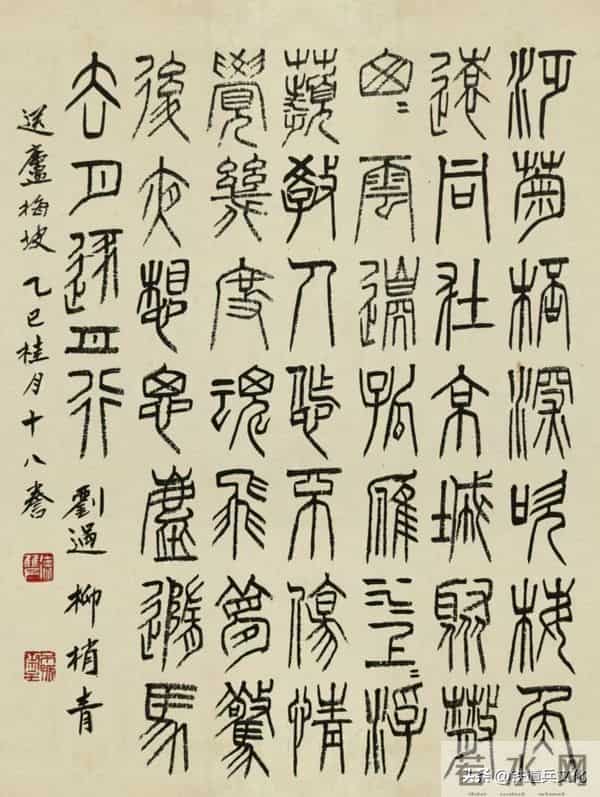 泛菊桮深吹梅角
遠同在京城聚散
匆〻雲邊孤雁水上浮
教人怎不傷情
覺幾度魂飛夢驚
後夜想思塵隨馬
去月逐舟行 劉過 柳梢青
送盧梅坡 乙巳桂月十八
若水网
头条 @铁道兵文化